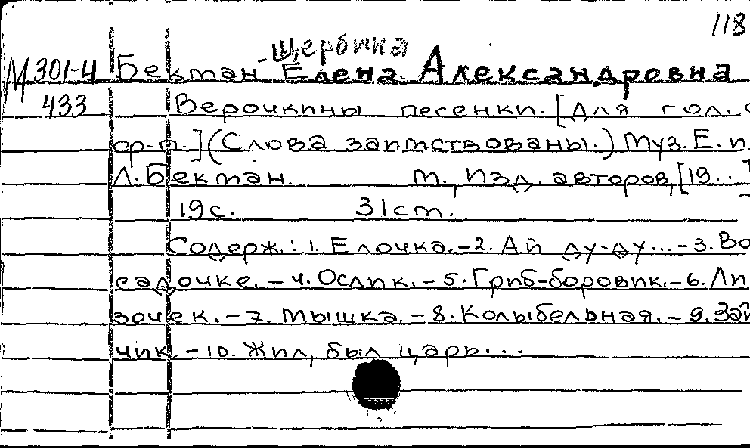 118
-Щербина
М301-4 Бекман Елена Александровна
433 Верочкины песенки. [Для гол. с
ор-п.] (Слова заимствованы.) Муз. Е. и
Л. Бекман. М., Изд. авторов, [19..]
19с. 31см.
Содерж.: 1. Елочка.-2. Ай ду-ду...-3. Во
садочке.-4. Ослик.-5. Гриб-боровик.-6. Ли
зочек.-7. Мышка.-8. Колыбельная.-9. Зай
чик.-10. Жил, был царь...